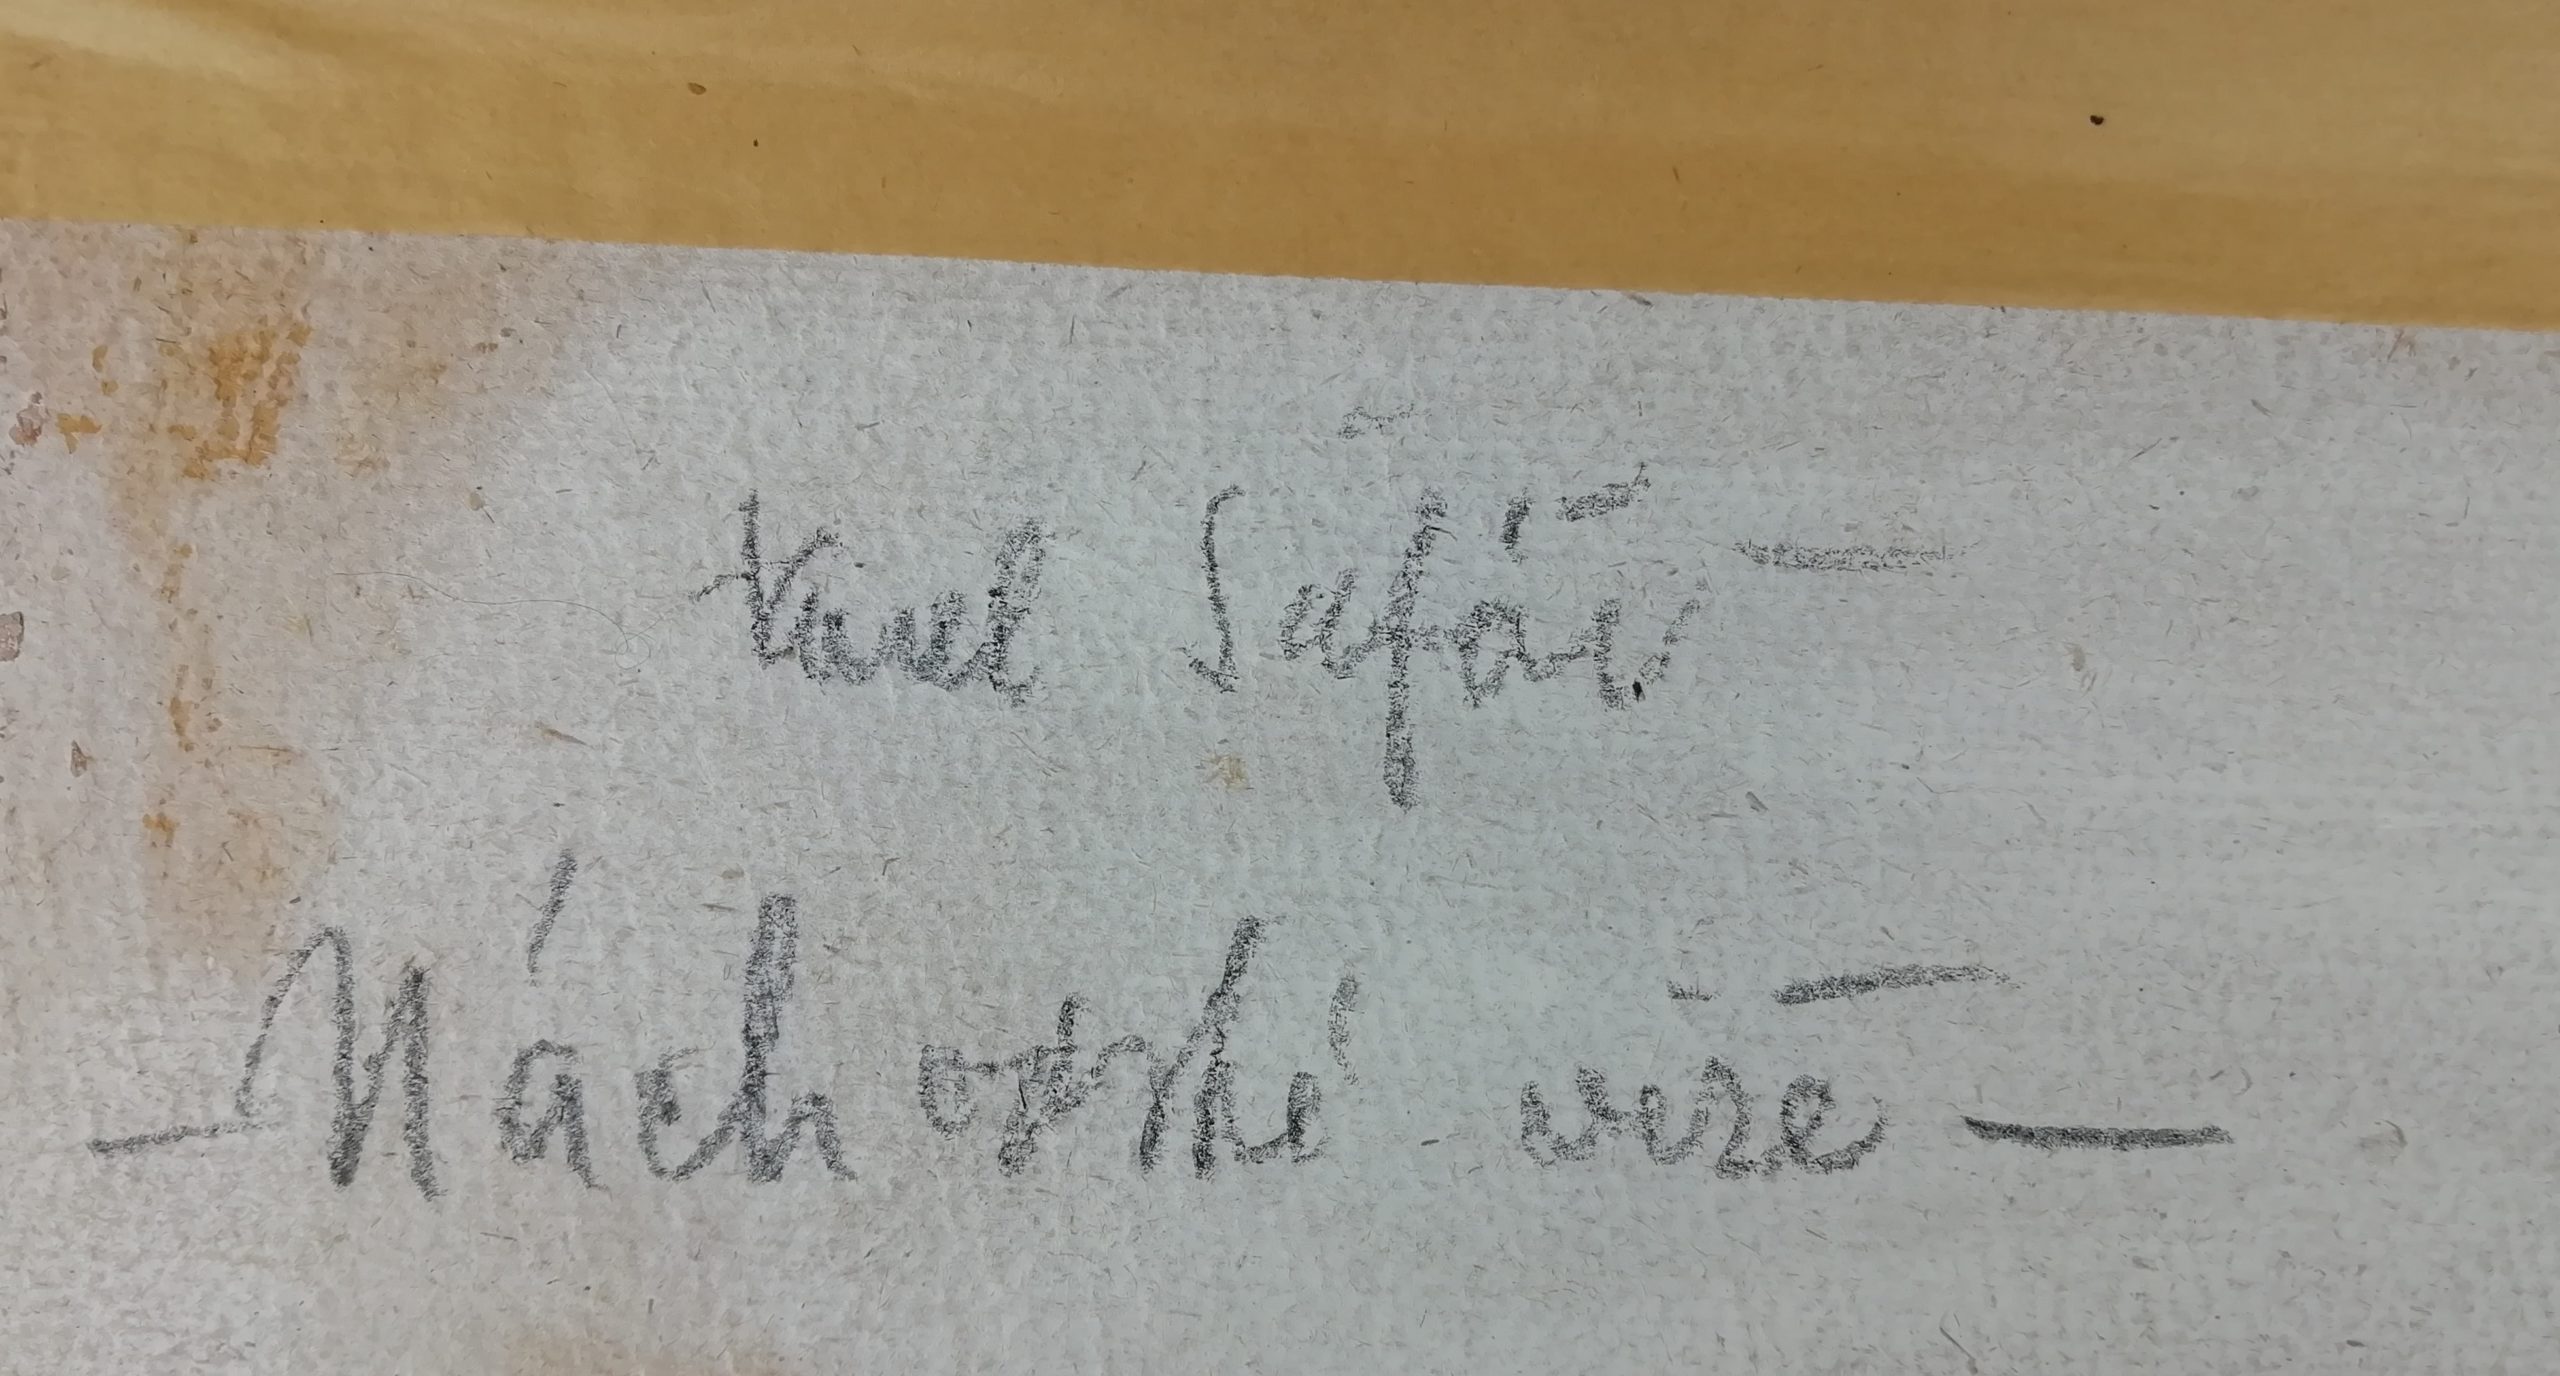 Karel Šafář –
– Náchodské věže –